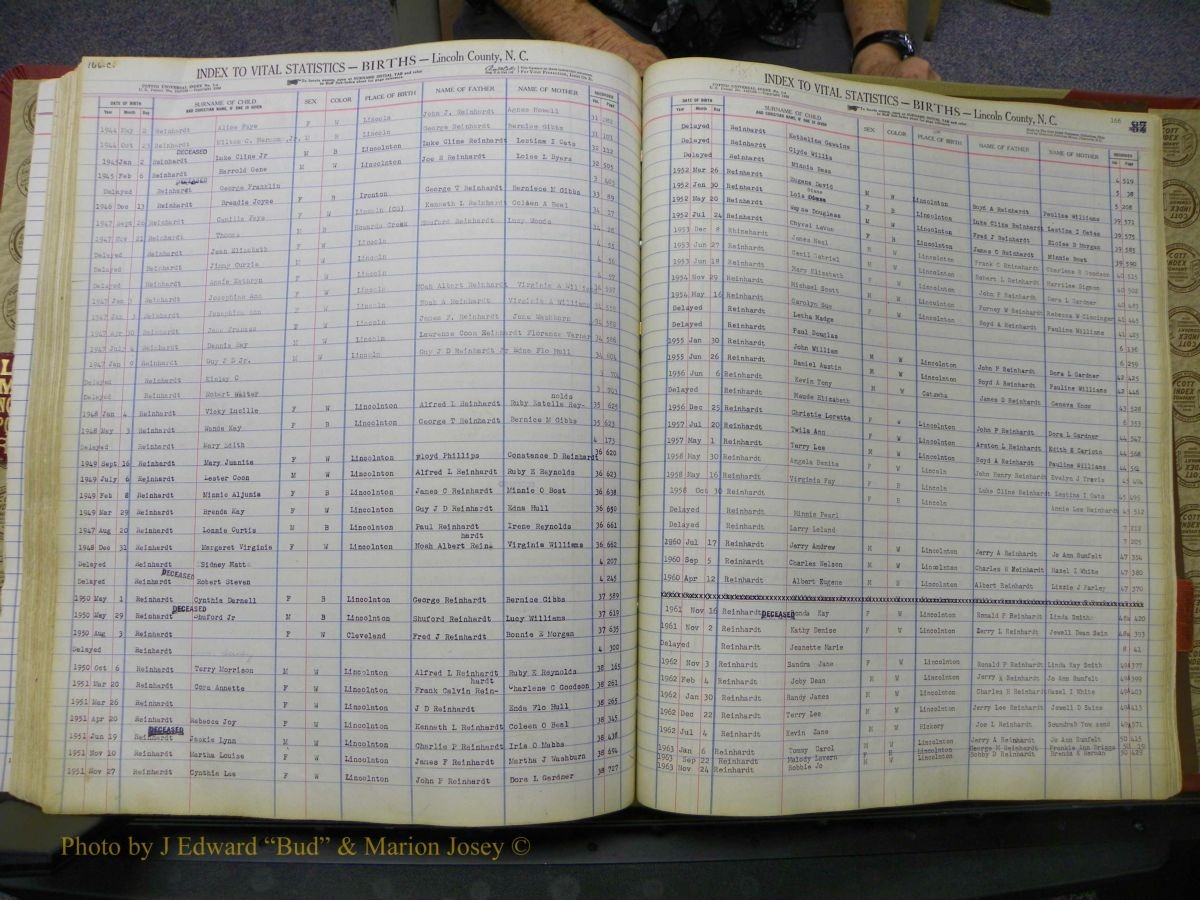 166-C
INDEX TO VITAL STATISTICS — BIRTHS — Lincoln County, N. C.
DATE OF BIRTH SURNAME OF CHILD SEX COLOR PLACE OF BIRTH NAME OF FATHER NAME OF MOTHER RECORDED
Year Month Day AND CHRISTIAN NAME, IF ONE IS GIVEN Vol. Page
1944 May 2 Reinhardt Alice Faye F W Lincoln John J. Reinhardt Agnes Howell 31 282
1944 Oct 23 Reinhardt Lincoln George Reinhardt Bernice Gibbs 31
DECEASED
1945 Jan 2 Reinhardt Luke Cline Jr M B Lincolnton Luke Cline Reinhardt Lestina I Cats 32
1945 Feb 6 Reinhardt Harrold Gene M Lincolnton Joe S Reinhardt Lois L Byers 32 505
Delayed Reinhardt George Franklin
1946 Dec 13 Reinhardt Brendia Joyce F B Ironton George T Reinhardt Berniece M Gibbs 33 89
1947 Sept 26 Reinhardt Camilla Faye Lincoln (CO) Kenneth L Reinhardt Coldeen A Beal 34 27
1947 Nov 21 Reinhardt Thomas M B Howards Creek Shuford Reinhardt Lucy Woods 34
Delayed Reinhardt Jean Elizabeth F Lincoln
Delayed Reinhardt Jimmy Currie Lincoln
Delayed Reinhardt Annie Kathryn Lincoln
1947 Jan 3 Reinhardt Josephine Ann Lincoln Noah Albert Reinhardt Virginia A
1947 Jan 3 Reinhardt Josephine Ann Lincoln Noah A Reinhardt Virginia A Williams
1947 Apr 30 Reinhardt Jane Frances F W Lincoln James F. Reinhardt June Washburn 34 588
1947 July 4 Reinhardt Dennis Ray M Lincolnton Laurence Coon Reinhardt Florence Varner 34 586
1947 Jan 9 Reinhardt Guy J D Jr. M W Lincoln Guy J D Reinhardt Jr Edna Flo Hull 34 604
Delayed Reinhardt Kinley C
Delayed Reinhardt Robert Walter 3 703
1948 Jan 4 Reinhardt Vicky Lucille F W Lincolnton Alfred L Reinhardt Ruby Estelle Rey-nolds 35 625
1948 May 3 Reinhardt Wanda Kay F B Lincolnton George T Reinhardt Bernice M Gibbs 35 623
Delayed Reinhardt Mary Edith 4 173
1949 Sept 16 Reinhardt Mary Juanita F W Lincolnton Floyd Phillips Constance D Reinhardt 36 620
1949 July 6 Reinhardt Lester Coon M W Lincolnton Alfred L Reinhardt Ruby E Reynolds 36 623
1949 Feb 8 Reinhardt Minnie Aljunia F B Lincolnton James C Reinhardt Minnie O Bost 36 638
1949 Mar 29 Reinhardt Brenda Kay F W Lincolnton Guy J D Reinhardt Edna Hull 36 650
1947 Aug 20 Reinhardt Lonnie Curtis M B Lincolnton Paul Reinhardt Irene Reynolds 36 661
1948 Dec 31 Reinhardt Margaret Virginia F W Lincolnton Noah Albert Rein-hardt Virginia Williams 36 662
Delayed Reinhardt Sidney Matt 4 207
DECEASED
Delayed Reinhardt Robert Steven 4 245
1950 May 1 Reinhardt Cynthia Darnell F B Lincolnton George Reinhardt Bernice Gibbs 37 589
DECEASED
1950 May 29 Reinhardt Shuford Jr M B Lincolnton Shuford Reinhardt Lucy Williams 37 619
1950 Aug 3 Reinhardt F W Cleveland Fred J Reinhardt Bonnie E Morgan 37 635
Delayed Reinhardt 4 300
1950 Oct 6 Reinhardt Terry Morrison M W Lincolnton Alfred L Reinhardt Ruby E Reynolds 38 165
1951 Mar 20 Reinhardt Cora Annette F W Lincolnton Frank Calvin Rein-hardt Charlene C Goodson 38 261
1951 Mar 26 Reinhardt F W Lincolnton J D Reinhardt Enda Flo Hull 38 265
1951 Apr 20 Reinhardt Rebecca Joy F W Lincolnton Kenneth L Reinhardt Coleen O Beal 38 345
DECEASED
1951 Jun 19 Reinhardt Jackie Lynn M W Lincolnton Charlie P Reinhardt Iris O Mabbs 38 438
1951 Nov 10 Reinhardt Martha Louise F W Lincolnton James F Reinhardt Martha J Washburn 38 694
1951 Nov 27 Reinhardt Cynthia Lee F W Lincolnton John P Reinhardt Dora L Gardner 38 727
INDEX TO VITAL STATISTICS — BIRTHS — Lincoln County, N. C.
166
DATE OF BIRTH SURNAME OF CHILD SEX COLOR PLACE OF BIRTH NAME OF FATHER NAME OF MOTHER RECORDED
Year Month Day AND CHRISTIAN NAME, IF ONE IS GIVEN Vol. Page
Delayed Reinhardt Katheline Gawaine 4 519
Delayed Reinhardt Clyde Willis
Delayed Reinhardt Minnie Bess 5 38
1952 Mar 26 Reinhardt Eugene David M W Lincolnton Boyd A Reinhardt Pauline Williams 39 571
1952 Jan 30 Reinhardt Lois Diane F B Lincolnton Luke Cline Reinhardt Lestina I Cates 39 575
1952 May 20 Reinhardt Wayne Douglass M W Lincolnton Fred J Reinhardt Eloise D Morgan 39 583
1952 Jul 24 Reinhardt Chyral Lavon F B Lincolnton James C Reinhardt Minnie Bost 39 590
1953 Dec 8 Rhinehardt James Neal Lincolnton Frank C Reinhardt Charlene H Goodson 40
1953 Jun 27 Reinhardt Cecil Gabriel Lincolnton Robert L Reinhardt Merrilee Sigmon 40 502
1953 Jun 18 Reinhardt Mary Elizabeth F W Lincolnton John P Reinhardt Dora L Gardner
1954 Nov 29 Reinhardt Michael Scott M W Lincolnton Forney W Reinhardt Rebecca W Cloninger
1954 May 16 Reinhardt Carolyn Sue F W Lincolnton Boyd A Reinhardt Pauline Williams
Delayed Reinhardt Letha Madge 6 136
Delayed Reinhardt Paul Douglas 6 259
1955 Jan 30 Reinhardt John William M W Lincolnton John P Reinhardt Dora L Gardner 42 425
1955 Jun 26 Reinhardt Daniel Austin M W Lincolnton Boyd A Reinhardt Pauline Williams 42 446
1956 Jun 6 Reinhardt Kevin Tony M W Catawba James D Reinhardt Geneva Knox 43 528
Delayed Reinhardt Maude Elizabeth 6 353
1956 Dec 25 Reinhardt Christie Loretta F W Lincolnton John P Reinhardt Dora L Gardner 44 547
1957 Jul 20 Reinhardt Twila Ann F W Lincolnton Arston L Reinhardt 44 568
1957 May 1 Reinhardt Terry Lee M W Lincolnton Boyd A Reinhardt Pauline Williams 44
1958 May 30 Reinhardt Angela Denita F W Lincoln John Henry Reinhardt Evelyn J Travis 45
1958 May 16 Reinhardt Virginia Fay F B Lincoln Luke Cline Reinhardt Lestina I Cats 45 495
1958 Oct 30 Reinhardt F B Lincoln Annie Lee Reinhardt 45 512
Delayed Reinhardt Minnie Pearl
Delayed Reinhardt Larry Leland 7 205
1960 Jul 17 Reinhardt Jerry Andrew M W Lincolnton Jerry A Reinhardt Jo Ann Rumfelt 47 354
1960 Sep 5 Reinhardt Charles Nelson M W Lincolnton Charles H Reinhardt Hazel I White 47 380
1960 Apr 12 Reinhardt Albert Eugene M W Lincolnton Albert Reinhardt Lizzie J Farley 47 370
1961 Nov 16 Reinhardt DECEASED Ronda Kay F W Lincolnton Ronald P Reinhardt Linda Smith 48 420
1961 Nov 2 Reinhardt Kathy Denise F W Lincolnton Jerry L Reinhardt Jewell Dean Sain 48 393
Delayed Reinhardt Jeanette Marie 8 41
1962 Nov 3 Reinhardt Sandra Jane F W Lincolnton Ronald P Reinhardt Linda Kay Smith 49 377
1962 Feb 4 Reinhardt Joby Dean M W Lincolnton Jerry A Reinhardt Jo Ann Rumfelt 49 399
1962 Jan 30 Reinhardt Randy James M W Lincolnton Charles H Reinhardt Hazel I White 49 403
1962 Dec 22 Reinhardt Terry Lee M W Lincolnton Jerry Lee Reinhardt Jewell D Sains 49 413
1962 Jul 4 Reinhardt Kevin Zane M W Hickory Joe L Reinhardt 49 571
1963 Jan 6 Reinhardt Tommy Carol M W Lincolnton Jerry A Reinhardt Jo Ann Rumfelt 50 415
1963 Sep 22 Reinhardt Malody Lavern Lincolnton George M Reinhardt Frankie Ann Briggs 50 19
1963 Nov 24 Reinhardt Robbie Jo W Lincolnton Bobby D Reinhardt Brenda K Herman 50 425
Photo by J Edward “Bud” & Marion Josey ©